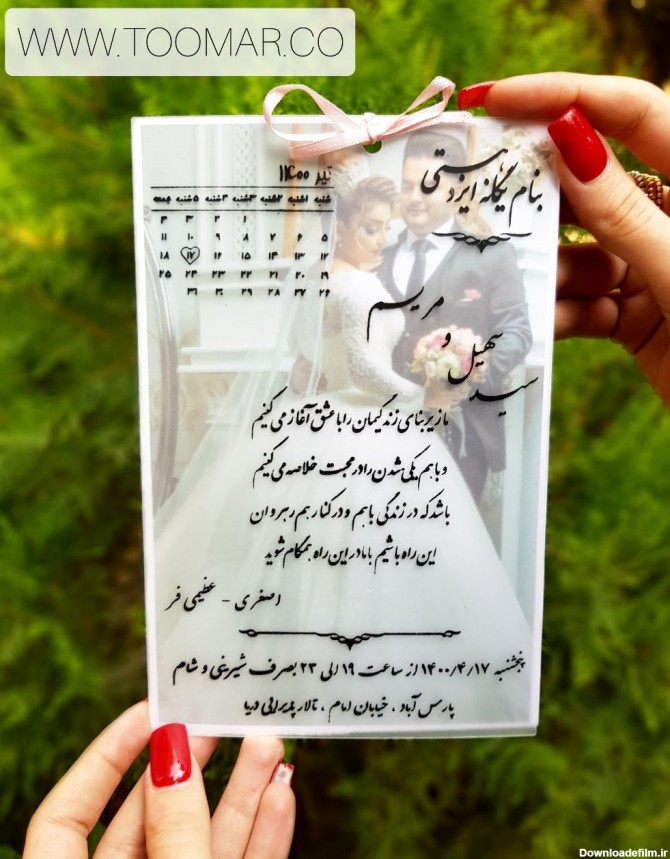 WWW.TOOMAR.CO
بنام یگانه ایزد هستی
تیر ۱۴۰۰
شنبه ۱شنبه ۲شنبه ۳شنبه ۴شنبه ۵شنبه جمعه
۱ ۲ ۳ ۴
۵ ۶ ۷ ۸ ۹ ۱۰ ۱۱
۱۲ ۱۳ ۱۴ ۱۵ ۱۶ ۱۷ ۱۸
۱۹ ۲۰ ۲۱ ۲۲ ۲۳ ۲۴ ۲۵
۲۶ ۲۷ ۲۸ ۲۹ ۳۰ ۳۱
مریم
و
سید سهیل
ما زیر بنای زندگیمان را با عشق آغاز می کنیم
و با هم یکی شدن را در محبت خلاصه می کنیم
باشد که در زندگی با هم و در کنار هم رهروان
این راه باشیم با ما در این راه همگام شوید
اصغری - عظیمی فر
پنجشنبه ۱۴۰۰/۴/۱۷ از ساعت ۱۹ الی ۲۳ بصرف شیرینی و شام
پارس آباد ، خیابان امام ، تالار پذیرایی دریا
Downloadefilm.ir